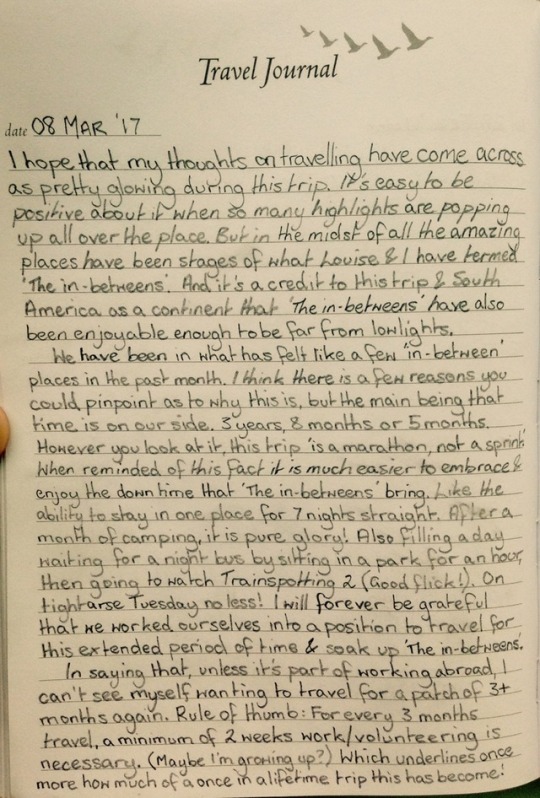 Travel Journal
date 08 MAR '17
I hope that my thoughts on travelling have come across
as pretty glowing during this trip. It's easy to be
positive about it when so many highlights are popping
up all over the place. But in the midst of all the amazing
places have been stages of what Louise & I have termed
'The in-betweens'. And it's a credit to this trip & South
America as a continent that 'The in-betweens' have also
been enjoyable enough to be far from lowlights.
We have been in what has felt like a few 'in-between'
places in the past month. I think there is a few reasons you
could pinpoint as to why this is, but the main being that
time is on our side. 3 years, 8 months or 5 months.
However you look at it, this trip 'is a marathon, not a sprint'
When reminded of this fact it is much easier to embrace &
enjoy the down time that 'The in-betweens' bring. Like the
ability to stay in one place for 7 nights straight. After a
month of camping, it is pure glory! Also filling a day
waiting for a night bus by sitting in a park for an hour,
then going to watch Trainspotting 2 (Good flick!). On
tightarse Tuesday no less! I will forever be grateful
that we worked ourselves into a position to travel for
this extended period of time & soak up 'The in-betweens'.
In saying that, unless it's part of working abroad, I
can't see myself wanting to travel for a patch of 3+
months again. Rule of thumb: For every 3 months
travel, a minimum of 2 weeks work/volunteering is
necessary. (Maybe I'm growing up?) Which underlines once
more how much of a once in a lifetime trip this has become!